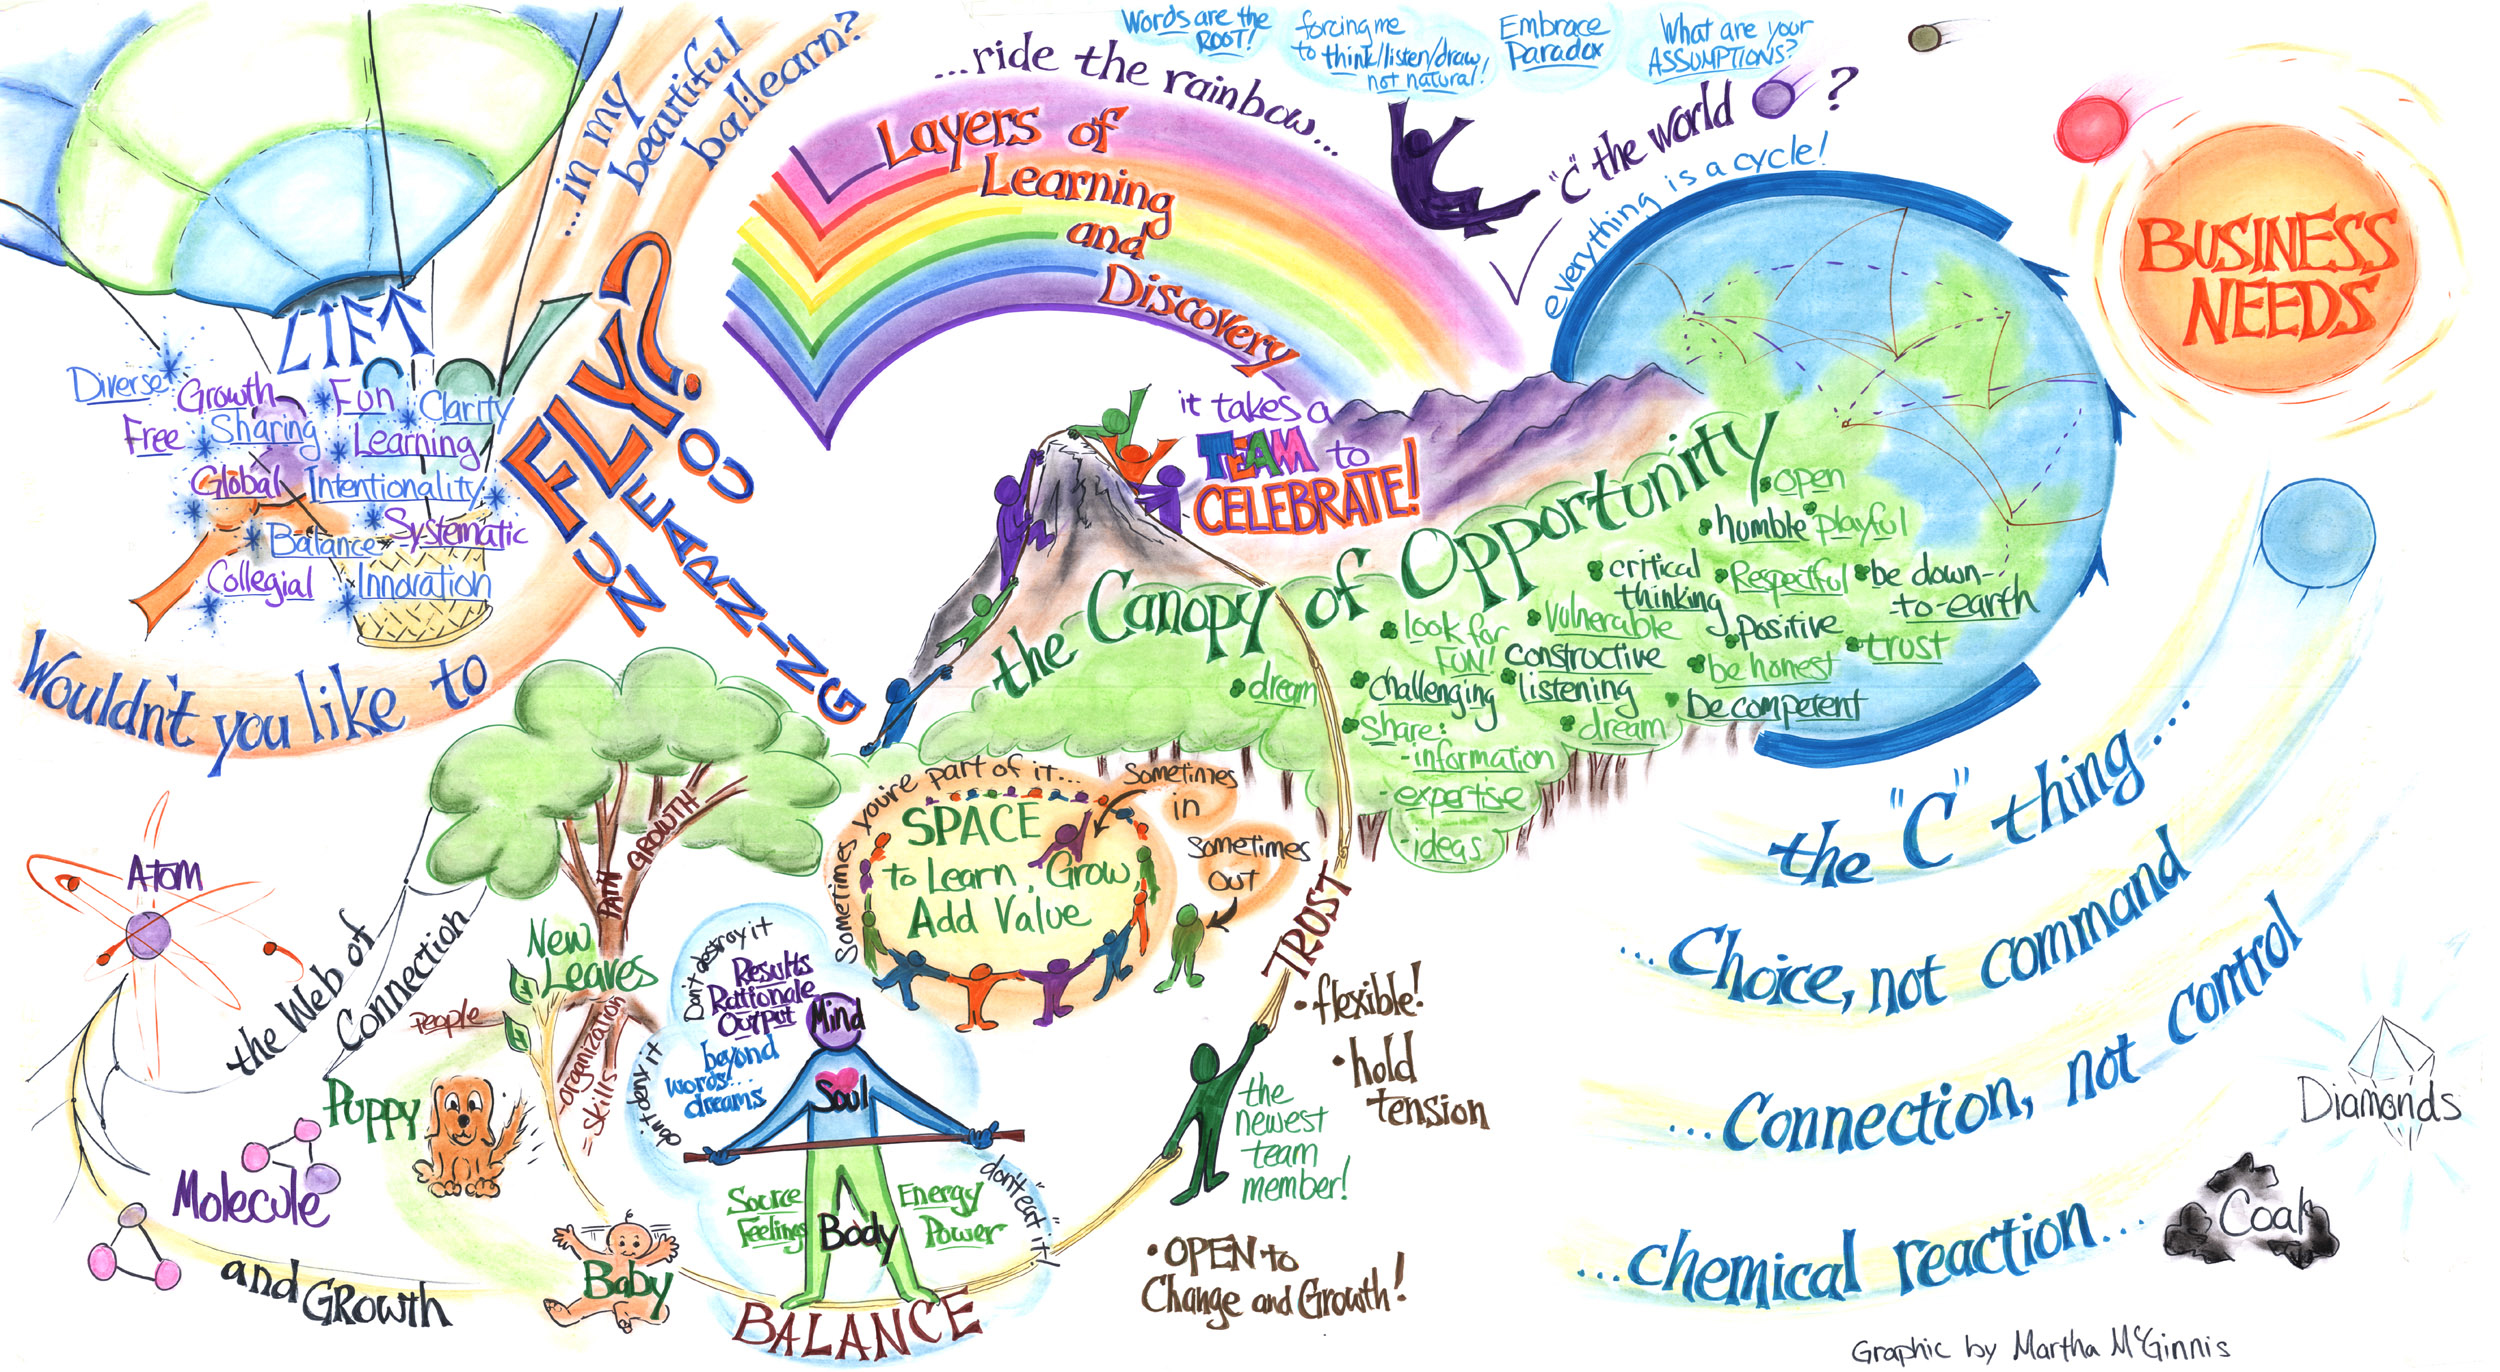 ...in my
beautiful
bal·learn?
LIFT
Diverse
Growth
Fun
Clarity
Free
Sharing
Learning
Global
Intentionality
Balance
Systematic
Collegial
Innovation
Wouldn't you like to
FLY?
NUCLEAR
LEARNING
...ride the rainbow...
Layers of
Learning
and
Discovery
Words are the
ROOT!
forcing me
to think/listen/draw
not natural!
Embrace
Paradox
What are your
ASSUMPTIONS?
"C" the world ?
everything is a cycle!
BUSINESS
NEEDS
it takes a
TEAM to
CELEBRATE!
the Canopy of Opportunity
open
humble
playful
critical
thinking
Respectful
be down-
-to-earth
look for
FUN!
Vulnerable
positive
trust
constructive
be honest
dream
challenging
listening
be competent
Share:
-information
-expertise
-ideas
dream
Sometimes you're part of it...
SPACE
to Learn, Grow,
Add Value
Sometimes
in
Sometimes
OUT
PATH
GROWTH
New
Leaves
People
-organization
=skills
Atom
the Web of
Connection
Puppy
Molecule
and GRowth
Baby
Don't destroy it
Results
Rationale
Output
Mind
don't deny it
beyond
words...
dreams
Soul
Source
Feelings
Body
Energy
Power
don't "eat" it!
BALANCE
TRUST
• flexible!
• hold
tension
the
newest
team
member!
• OPEN to
Change and Growth!
the "C" thing...
...Choice, not command
...Connection, not Control
...chemical reaction...
Diamonds
Coal
Graphic by Martha McGinnis